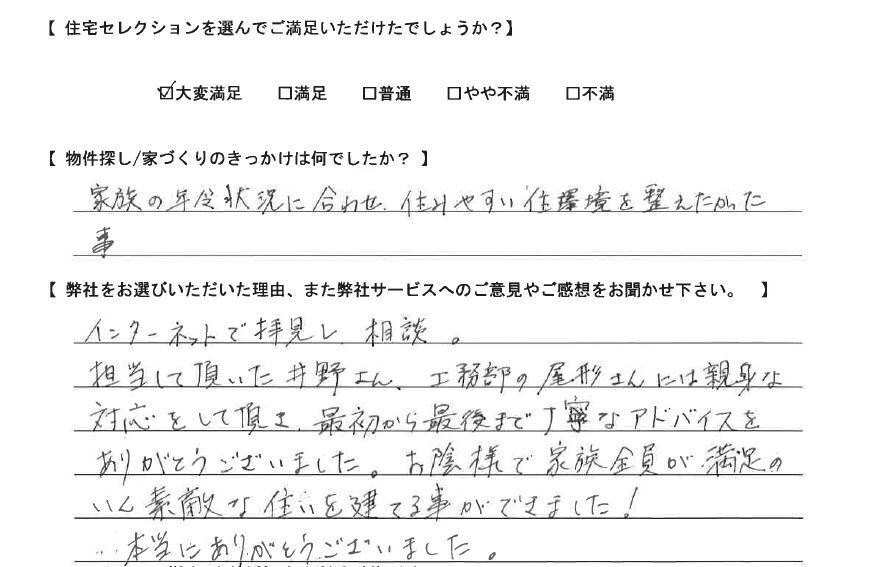 【 住宅セレクションを選んでご満足いただけたでしょうか？】
☑大変満足　☐満足　☐普通　☐やや不満　☐不満
【 物件探し/家づくりのきっかけは何でしたか？ 】
家族の年令状況に合わせ、住みやすい住環境を整えたかった
事
【 弊社をお選びいただいた理由、また弊社サービスへのご意見やご感想をお聞かせ下さい。　】
インターネットで拝見し、相談。
担当して頂いた井野さん、工務部の尾形さんには親身な
対応をして頂き、最初から最後まで丁寧なアドバイスを
ありがとうございました。お陰様で家族全員が満足の
いく素敵な住いを建てる事ができました！
本当にありがとうございました。